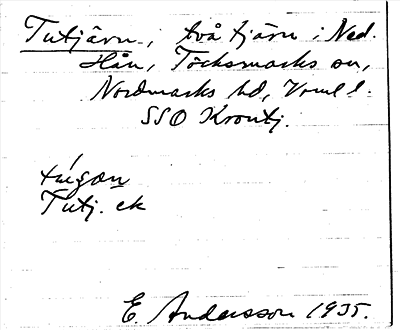 Tutjärn, två tjärn i Ned.
Hån, Töcksmarks sn,
Nordmarks hd, Vrml l.
SSO Krontj.
Tutj. ek
E Andersson 1935.